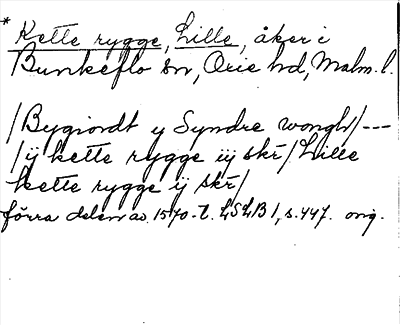 * Kette rygge, Lille, åker i
Bunkeflo sn, Oxie hd, Malm. l.
/Bygiordt y Syndre wongh/---
/ÿ kette rygge iij skr/Lille
kette rygge ij skr/
förra delen av 1570-t. LSLB 1, s. 447. orig.